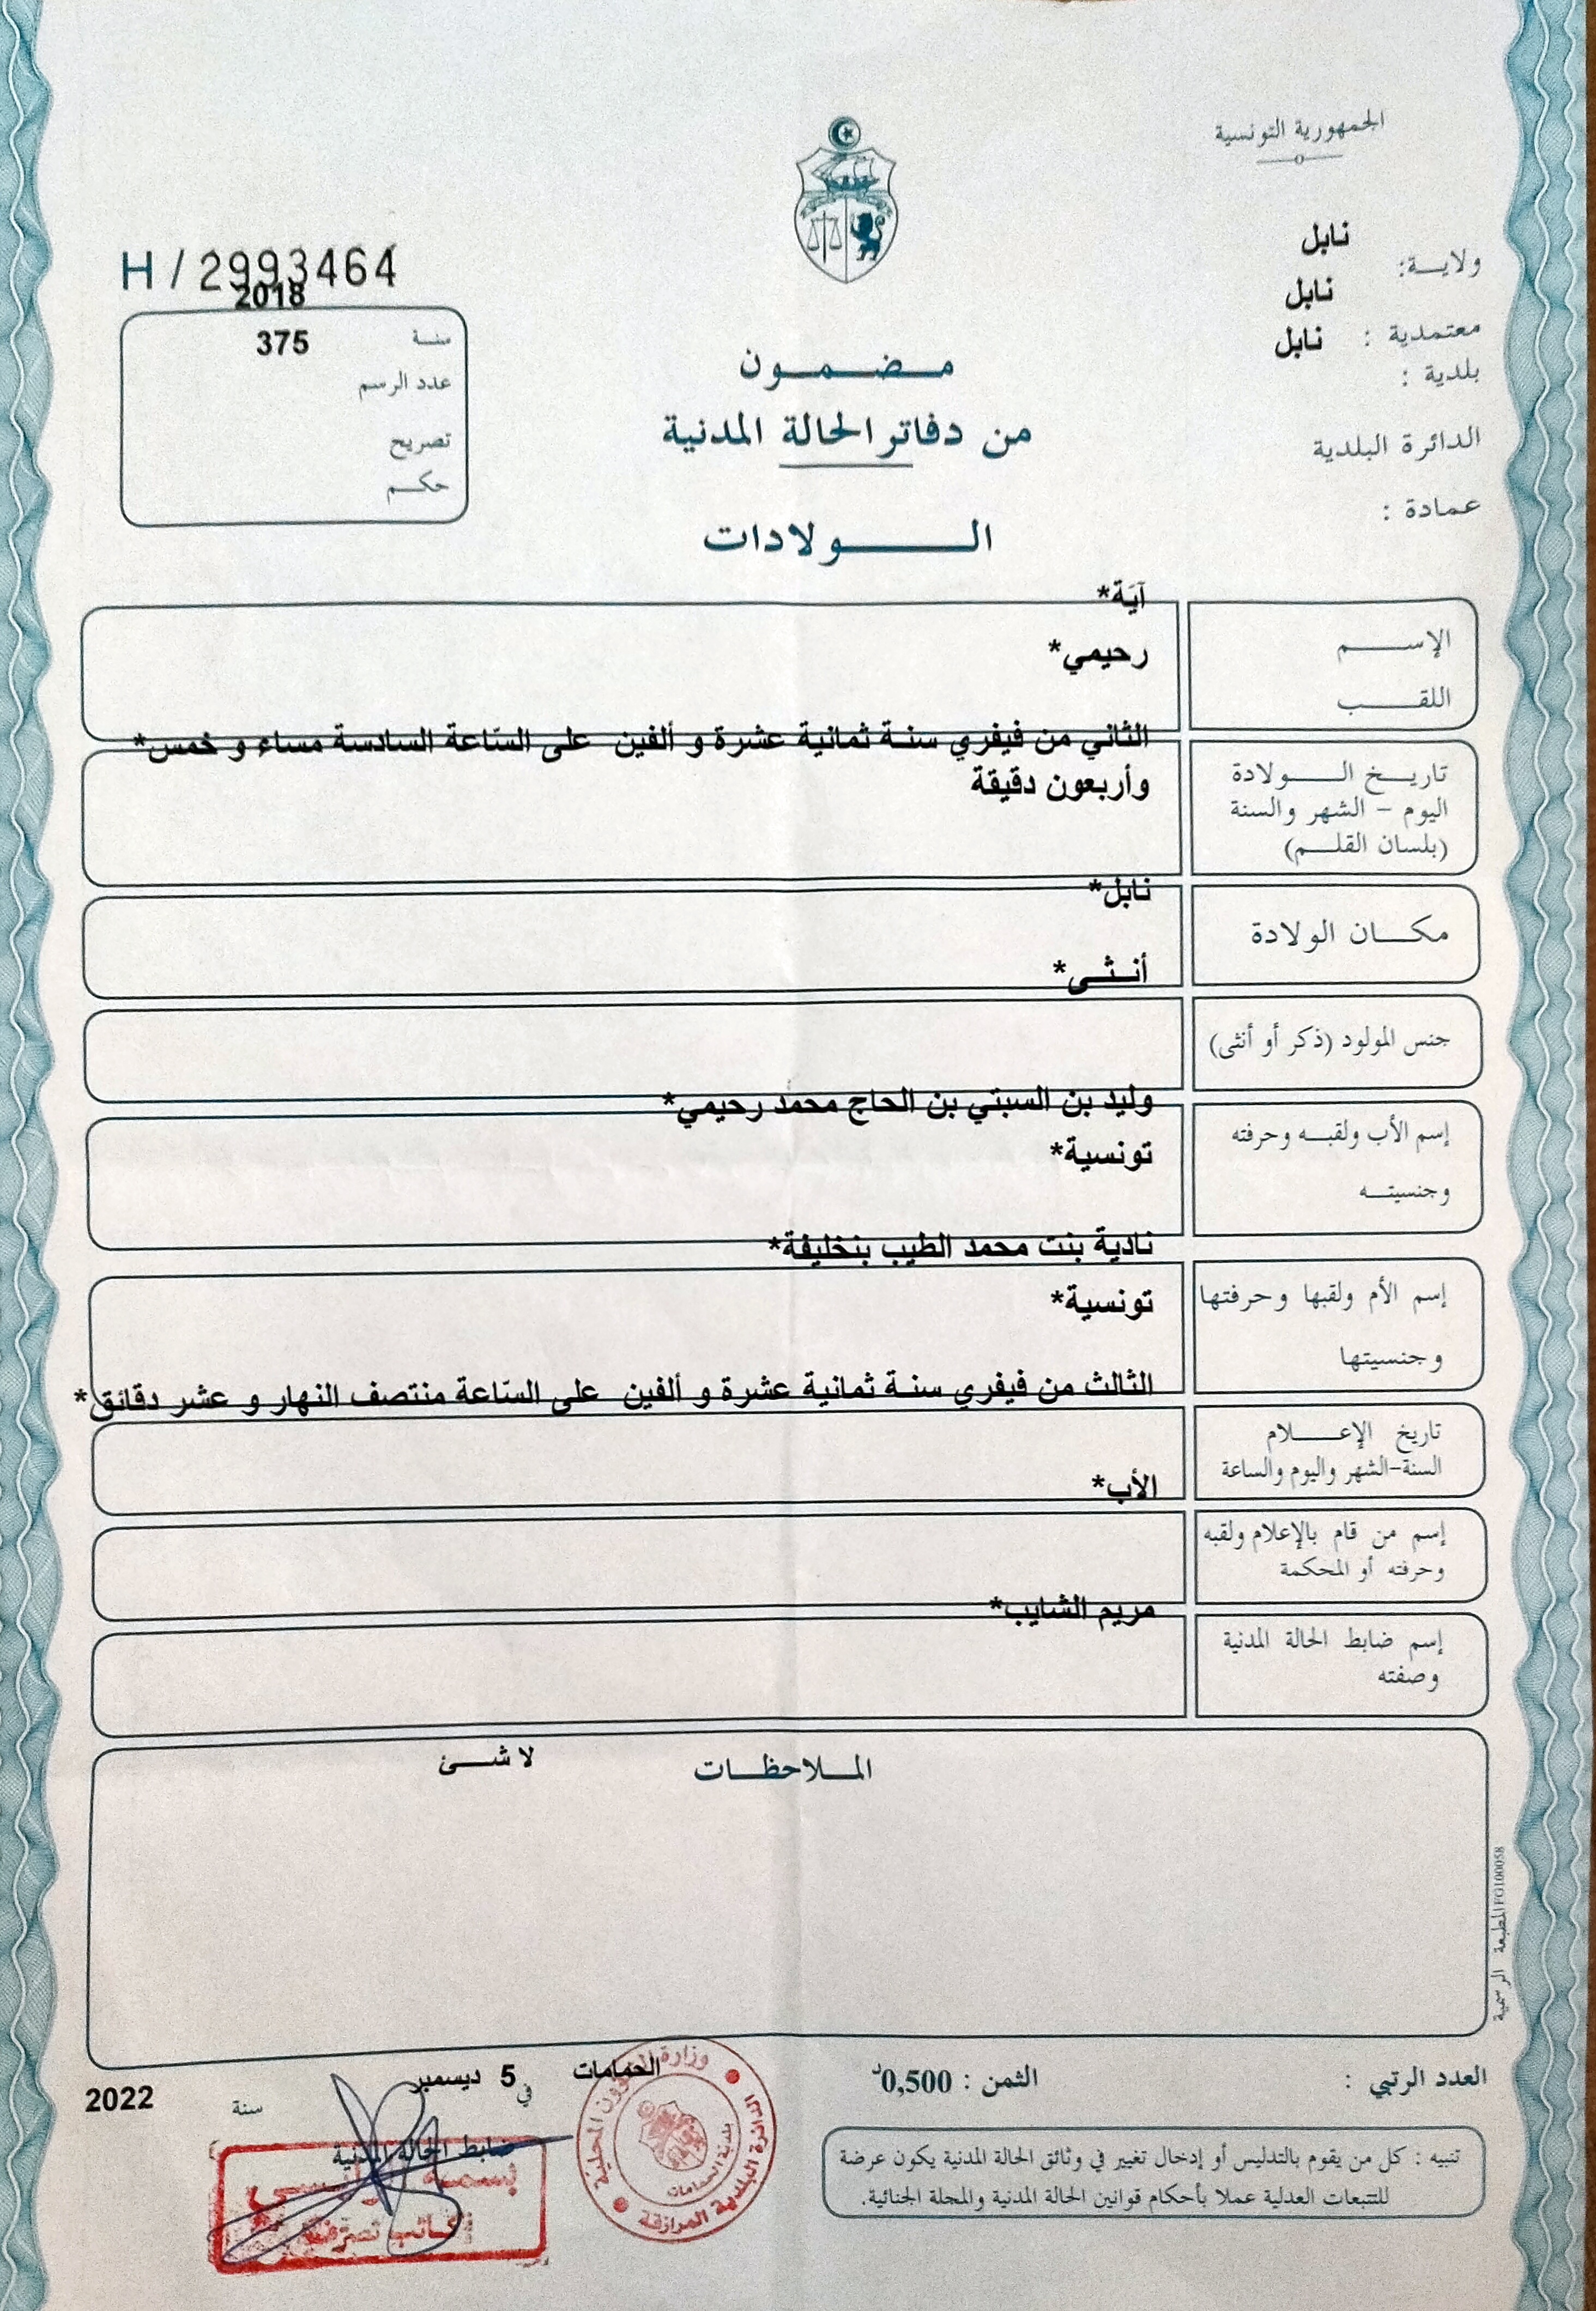 الجمهورية التونسية
نابل
ولايـة:
نابل
معتمدية :
نابل
بلدية :
الدائرة البلدية
عمادة :
H / 2993464
2018
سنـة
375
عدد الرسم
تصريح
حكـم
مـضـمـون
من دفاتر الحالة المدنية
الـولادات
آيَة*
الإسـم
رحيمي*
اللقـب
الثاني من فيفري سنـة ثمانية عشرة و ألفين على السّاعة السادسة مساء و خمس*
تاريـخ الـولادة
وأربعون دقيقة
اليوم - الشهر والسنة
(بلسان القلـم)
نابل*
مكـان الولادة
أنـثـى*
جنس المولود (ذكر أو أنثى)
وليد بن السبتي بن الحاج محمد رحيمي*
إسم الأب ولقبـه وحرفته
تونسية*
وجنسيتـه
نادية بنت محمد الطيب بنخليفة*
إسم الأم ولقبها وحرفتها
تونسية*
وجنسيتها
الثالث من فيفري سنـة ثمانية عشرة و ألفين على السّاعة منتصف النهار و عشر دقائق*
تاريخ الإعـلام
السنة-الشهر واليوم والساعة
الأب*
إسم من قام بالإعلام ولقبه
وحرفته أو المحكمة
مريم الشايب*
إسم ضابط الحالة المدنية
وصفته
المـلاحظـات
لا شـئ
المطبعة الرسمية FG100058
العدد الرتبي :
الثمن : 0,500د
الحمامات
في
5 ديسمبر
سنة
2022
ضابط الحالة المدنية
تنبيه : كل من يقوم بالتدليس أو إدخال تغيير في وثائق الحالة المدنية يكون عرضة
للتتبعات العدلية عملا بأحكام قوانين الحالة المدنية والمجلة الجنائية.
وزارة الشؤون المحلية
الدائرة البلدية المرازقة
بلدية الحمامات
بسمة
كاتب تصرف